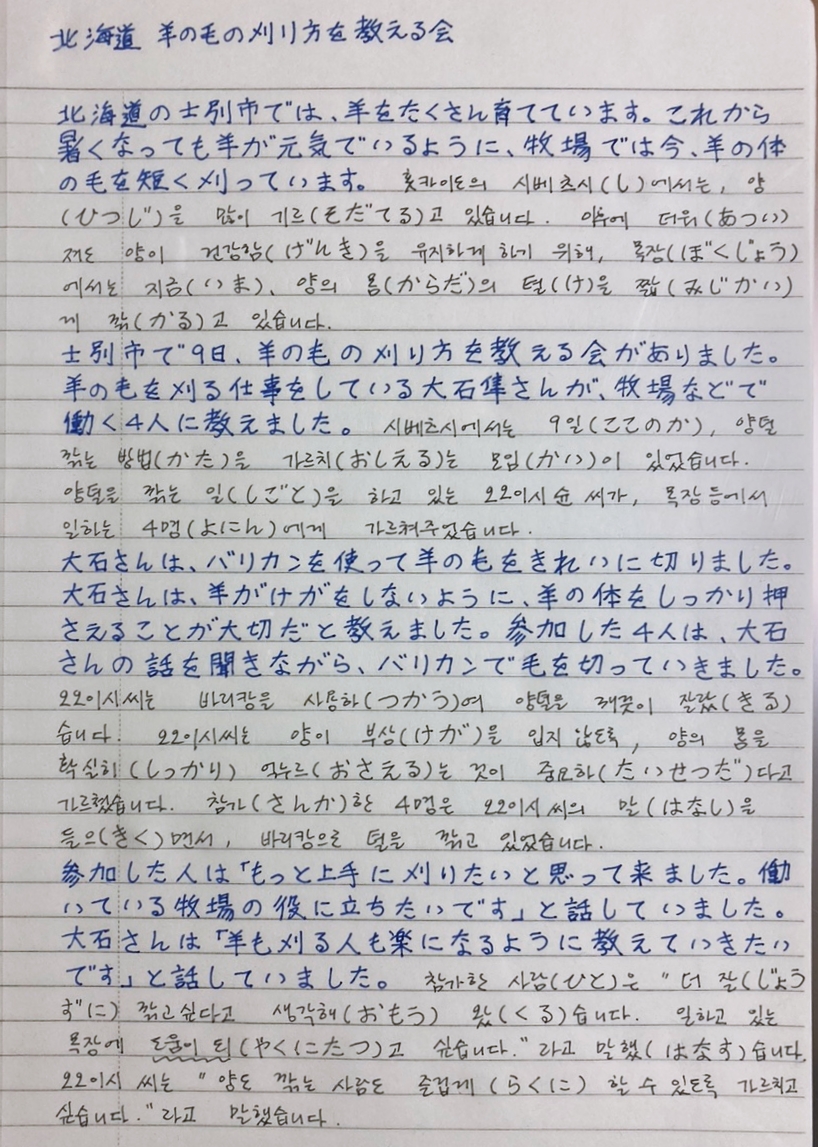 北海道 羊の毛の刈り方を教える会
北海道の士別市では、羊をたくさん育てています。これから
暑くなっても羊が元気でいるように、牧場では今、羊の体
の毛を短く刈っています。 홋카이도의 시베츠시(し)에서는, 양
(ひつじ)을 많이 기르(そだてる)고 있습니다. 이후에 더워(あつい)
져도 양이 건강함(げんき)을 유지하게 하기 위해, 목장(ぼくじょう)
에서는 지금(いま)、양의 몸(からだ)의 털(け)을 짧(みじかい)
게 깎(かる)고 있습니다.
士別市で9日、羊の毛の刈り方を教える会がありました。
羊の毛を刈る仕事をしている大石隼さんが、牧場などで
働く4人に教えました。 시베츠시에서는 9일(ここのか), 양털
깎는 방법(かた)을 가르치(おしえる)는 모임(かい)이 있었습니다.
양털을 깎는 일(しごと)을 하고 있는 오오이시 슌 씨가, 목장 등에서
일하는 4명(よにん)에게 가르쳐주었습니다.
大石さんは、バリカンを使って羊の毛をきれいに切りました。
大石さんは、羊がけがをしないように、羊の体をしっかり押
さえることが大切だと教えました。参加した4人は、大石
さんの話を聞きながら、バリカンで毛を切っていきました。
오오이시씨는 바리캉을 사용하(つかう)여 양털을 깨끗이 잘랐(きる)
습니다. 오오이시씨는 양이 부상(けが)을 입지 않도록, 양의 몸을
확실히(しっかり) 억누르(おさえる)는 것이 중요하(たいせつだ)다고
가르쳤습니다. 참가(さんか)한 4명은 오오이시 씨의 말(はなし)을
들으(きく)면서, 바리캉으로 털을 깎고 있었습니다.
参加した人は「もっと上手に刈りたいと思って来ました。働
いている牧場の役に立ちたいです」と話していました。
大石さんは「羊も刈る人も楽になるように教えていきたい
です」と話していました。 참가한 사람(ひと)은 "더 잘(じょう
ずに) 깎고싶다고 생각해(おもう) 왔(くる)습니다. 일하고 있는
목장에 도움이 되(やくにたつ)고 싶습니다."라고 말했(はなす)습니다.
오오이시 씨는 "양도 깎는 사람도 즐겁게(らくに) 할 수 있도록 가르치고
싶습니다."라고 말했습니다.